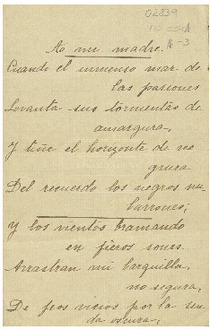 02839
A-3
A mi madre.
Cuando el inmenso mar de
las pasiones
Levanta sus tormentas de
amargura,
Y tiñe el horizonte de ne
grura
Del recuerdo los negros nu-
barrones;
Y los vientos bramando
en fieros sones
Arrastran mi barquilla,
no segura,
De feos vicios por la sen-
da oscura,